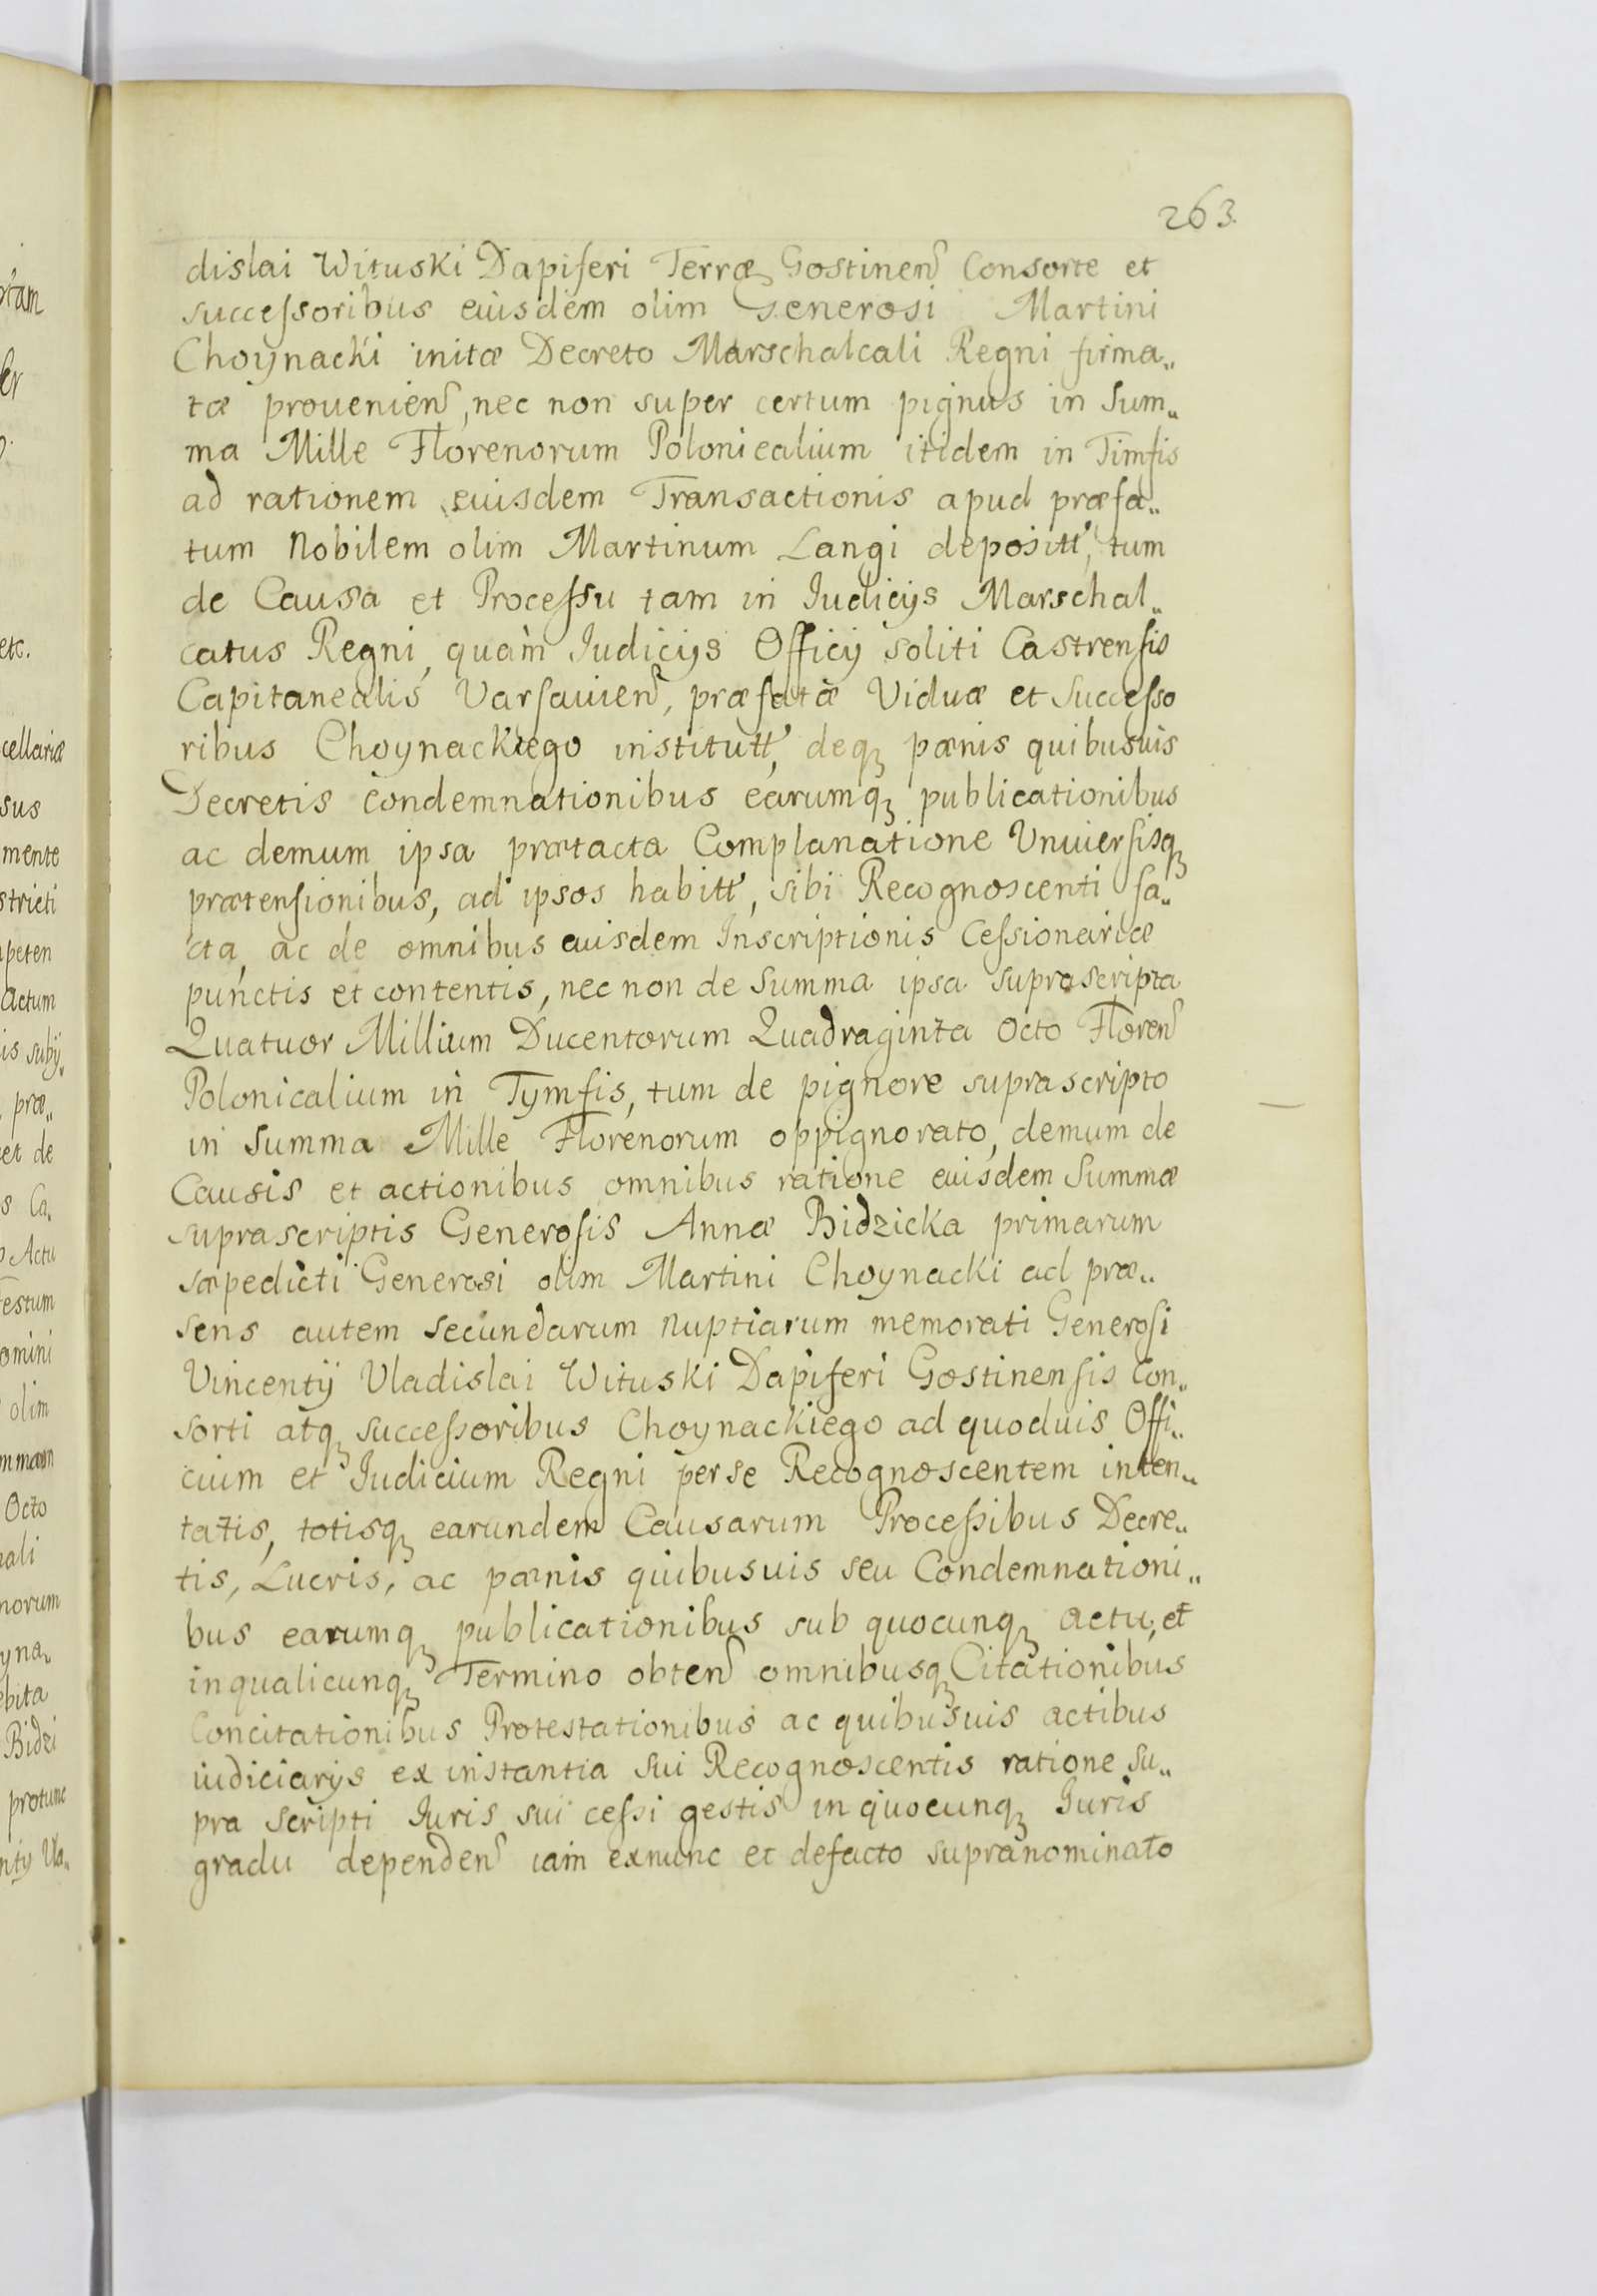 263.
dislai Wituski Dapiferi Terræ Gostinen Consorte et
successoribus eiusdem olim Generosi Martini
Choynacki initæ Decreto Marschalcali Regni firma„
tæ prouenien, nec non super certum pignus in Sum„
ma Mille Florenorum Polonicalium itidem in Timfis
ad rationem euisdem Transactionis apud præfa„
tum Nobilem olim Martinum Langi depositt, tum
de Causa et Processu tam in Iudicijs Marschal„
catus Regni, quam Iudicijs Officij soliti Castrensis
Capitanealis Varsauien, præfatæ Viduæ et Successo
ribus Choynackiego institutt, deq pœnis quibusuis
Decretis Condemnationibus earumq publicationibus
ac demum ipsa prætacta Complanatione Vniuersisq
prætensionibus, ad ipsos habitt, sibi Recognoscenti fa„
cta, ac de omnibus euisdem Inscriptionis Cessionariæ
punctis et contentis, nec non de Summa ipsa supra scripta
Quatuor Millium Ducentorum Quadraginta Octo Floren
Polonicalium in Tymfis, tum de pignore supra scripto
in Summa Mille Florenorum oppignorato, demum de
Causis et actionibus omnibus ratione euisdem Summæ
suprascriptis Generosis Annæ Bidzicka primarum
sæpedicti Generosi olim Martini Choynacki ad præ„
sens autem secundarum nuptiarum memorati Generosi
Vincentij Vladislai Wituski Dapiferi Gostinensis Con„
sorti atq successoribus Choynackiego ad quoduis Offi„
cium et Iudicium Regni per se Recognoscentem inten„
tatis, totisq earundem Causarum Processibus Decre„
tis, Lucris, ac pœnis quibusuis seu Condemnationi„
bus earumq publicationibus sub quocunq actu, et
inqualicunq Termino obten omnibusq Citationibus
Concitationibus Protestationibus ac quibusuis actibus
iudiciarijs ex instantia sui Recognoscentis ratione su„
pra scripti Iuris sui cessi gestis in quocunq Iuris
gradu dependen iam exnunc et defacto supranominato